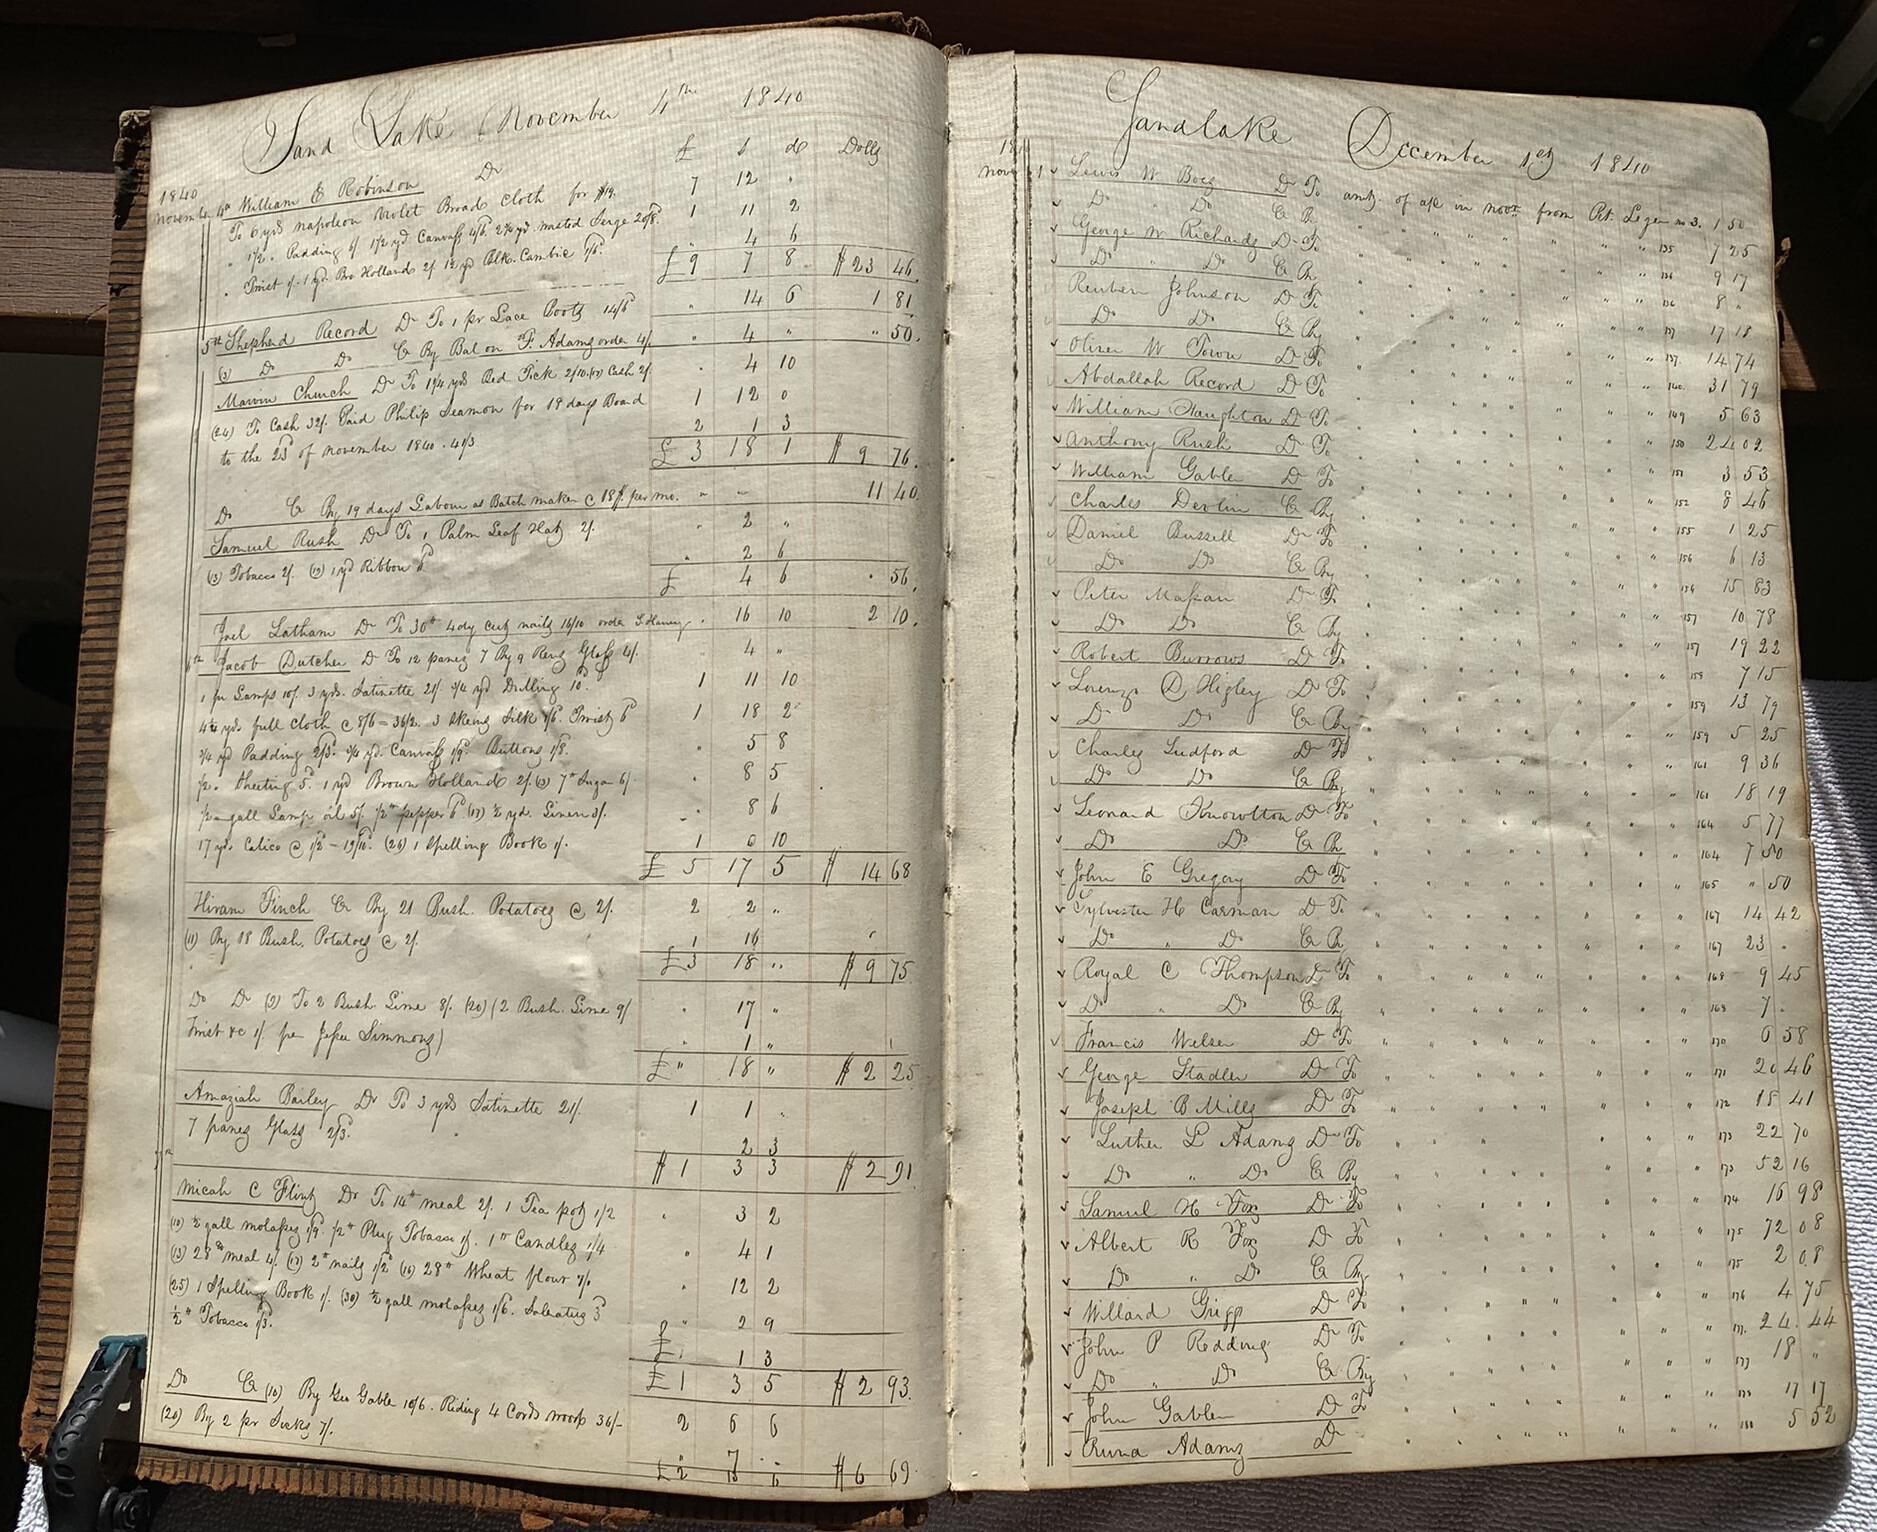 Sand Lake November 4th 1840
£ s d Dolls
1840 November 4th William E Robinson Dr
To 6 yds napoleon Violet Broad Cloth for $19. 7 12 "
" 1/2 " Padding 1/ 1 1/2 yd Canvass 4/6 2 3/4 yd worsted Serge 20/8 1 11 2
" Twist 1/. 1 yd. Bro Holland 2/. 1 1/2 yd Blk. Cambric 1/6 " 4 6
£ 9 7 8 $ 23 46
5th Shepherd Record Dr To 1 pr Lace Boots 14/6 " 14 6 1 81
(3) Do Do Cr By Bal on F. Adams order 4/. " 4 " " 50
Marvin Church Dr To 1 1/4 yds Bed Tick 2/10. Cash 2/. " 4 10
(24) To Cash 32/. Paid Philip Seamon for 18 days Board 1 12 0
to the 23d of november 1840. 41/3 2 1 3
£ 3 18 1 $ 9 76
Do Cr By 19 days Labour as Batch maker @ 18$ per mo. " " 11 40
Samuel Rush Dr To 1 Palm Leaf Hat 2/. " 2 "
(13) Tobacco 2/. (19) 1 yd Ribbon 6d " 2 6
£ 4 6 " 56
Joel Latham Dr To 30 lb 4dy cut nails 16/10 order " 16 10 2 10
6th Jacob Dutcher Dr To 12 panes 7 By 9 Glass 4/. " 4 "
1 pr Lamps 10/. 3 yds. Satinette 21/. 3/4 yd Drilling 10d 1 11 10
4 1/4 yds full Cloth @ 8/6 = 36/2. 3 Skeins Silk 1/6. Twist 6d 1 18 2
3/4 yd Padding 2/3. 3/4 yd. Canvass 1/9. Buttons 1/8. " 5 8
1/2 " Sheeting 5d. 1 yd Brown Holland 2/. 7 lb Sugar 6/. " 8 5
1/2 gall Lamp oil 5/. 1/2 lb pepper 6d (17) 1/2 yd. Linen 3/. " 8 6
17 yds Calico @ 1/2 = 19/10. (26) 1 Spelling Book 1/. 1 0 10
£ 5 17 5 $ 14 68
Hiram Finch Cr By 21 Bush. Potatoes @ 2/. 2 2 "
(11) By 18 Bush. Potatoes @ 2/. 1 16
£ 3 18 " $ 9 75
Do Dr (9) To 2 Bush Lime 8/. (20) (2 Bush. Lime 9/. " 17 "
Twist &c 1/. per Simmons) " 1 "
£ " 18 " $ 2 25
Amaziah Bailey Dr To 3 yds Satinette 21/. 1 1 "
7 panes Glass 2/3. 2 3
$ 1 3 3 $ 2 91
Micah C Flint Dr To 14 lb meal 2/. 1 Tea pot 1/2 " 3 2
(10) 1/2 gall molasses 1/9. 1/2 lb Plug Tobacco 1/. 1 lb Candles 1/4 " 4 1
(13) 28 lb meal 4/. (17) 2 lb nails 1/2 (16) 28 lb Wheat flour 7/. " 12 2
(25) 1 Spelling Book 1/. (30) 1/2 gall molasses 1/6. Saleratus 3d " 2 9
1/2 lb Tobacco 1/3. 1 3
£ 1 3 5 $ 2 93
Do Cr (10) By Geo Gable 10/6. Riding 4 Cords wood 36/- 2 6 6
(20) By 2 pr Socks 7/. " 7 "
£ 2 13 6 $ 6 69
Sandlake December 1st 1840
Nov 1 Lewis W Dr To amt. of a/c in novr. from Pet. Leger no 3. 1 50
Do " Do Cr By " " 135 7 25
George W Richards Dr To " " 136 9 17
Do " Do Cr By " " 136 8 "
Reuben Johnson Dr To " " 137 17 18
Do Do Cr By " " 137 14 74
Oliver W Town Dr To " " 140 31 79
Abdallah Record Dr To " " 149 5 63
William Haughton Dr To " " 150 24 02
Anthony Rush Dr To " " 151 3 53
William Gable Dr To " " 152 8 46
Charles Devlin Cr By " " 155 1 25
Daniel Bussell Dr To " " 156 6 13
Do Do Cr By " " 156 15 83
Peter Massau Dr To " " 157 10 78
Do Do Cr By " " 157 19 22
Robert Burrows Dr To " " 159 7 15
Lorenzo D Higley Dr To " " 159 13 79
Do Do Cr By " " 159 5 25
Charles Ludford Dr To " " 161 9 36
Do Do Cr By " " 161 18 19
Leonard Knowlton Dr To " " 164 5 77
Do Do Cr By " " 164 7 50
John E Gregory Dr To " " 165 " 50
Sylvester H Carman Dr To " " 167 14 42
Do " Do Cr By " " 167 23 "
Royal C Thompson Dr To " " 168 9 45
Do " Do Cr By " " 168 7 "
Francis Welser Dr To " " 170 0 58
George Stadler Dr To " " 171 20 46
Joseph B Mills Dr To " " 172 15 41
Luther L Adams Dr To " " 173 22 70
Do " Do Cr By " " 173 52 16
Samuel H Fox Dr To " " 174 16 98
Albert R Fox Dr To " " 175 72 08
Do " Do Cr By " " 175 2 08
Willard Gripp Dr To " " 176 4 75
John P Redding Dr To " " 177 24 44
Do " Do Cr By " " 177 18 "
John Gabler Dr To " " 178 17 17
Adams Dr " " 180 5 52